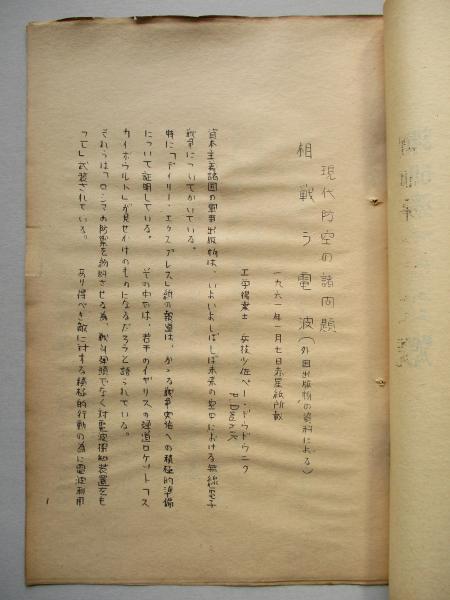 現代防空の諸問題
相戦う電波(外国出版物の資料による)
一九六一年一月七日赤星紙所載
工学得業士 兵技少佐ペー・ドウドウニク
資本主義諸国の軍事出版物は、いよいよしばしば未来の空中における無線電子
戦争についてかいている。
特に「デイリー・エクスプレス」紙の報道は、かゝる戦争実施への積極的準備
について証明している。 その中では、若干のイギリスの弾道ロケット「ス
カイボウルト」が見せかけのものになるだろうと語られている。
それらは「ロシヤの防禦を紛糾させる為、戦斗弾頭でなく対電波探知装置をも
って」武装されている。 あり得べき敵に対する積極的行動の為に電波利用
1